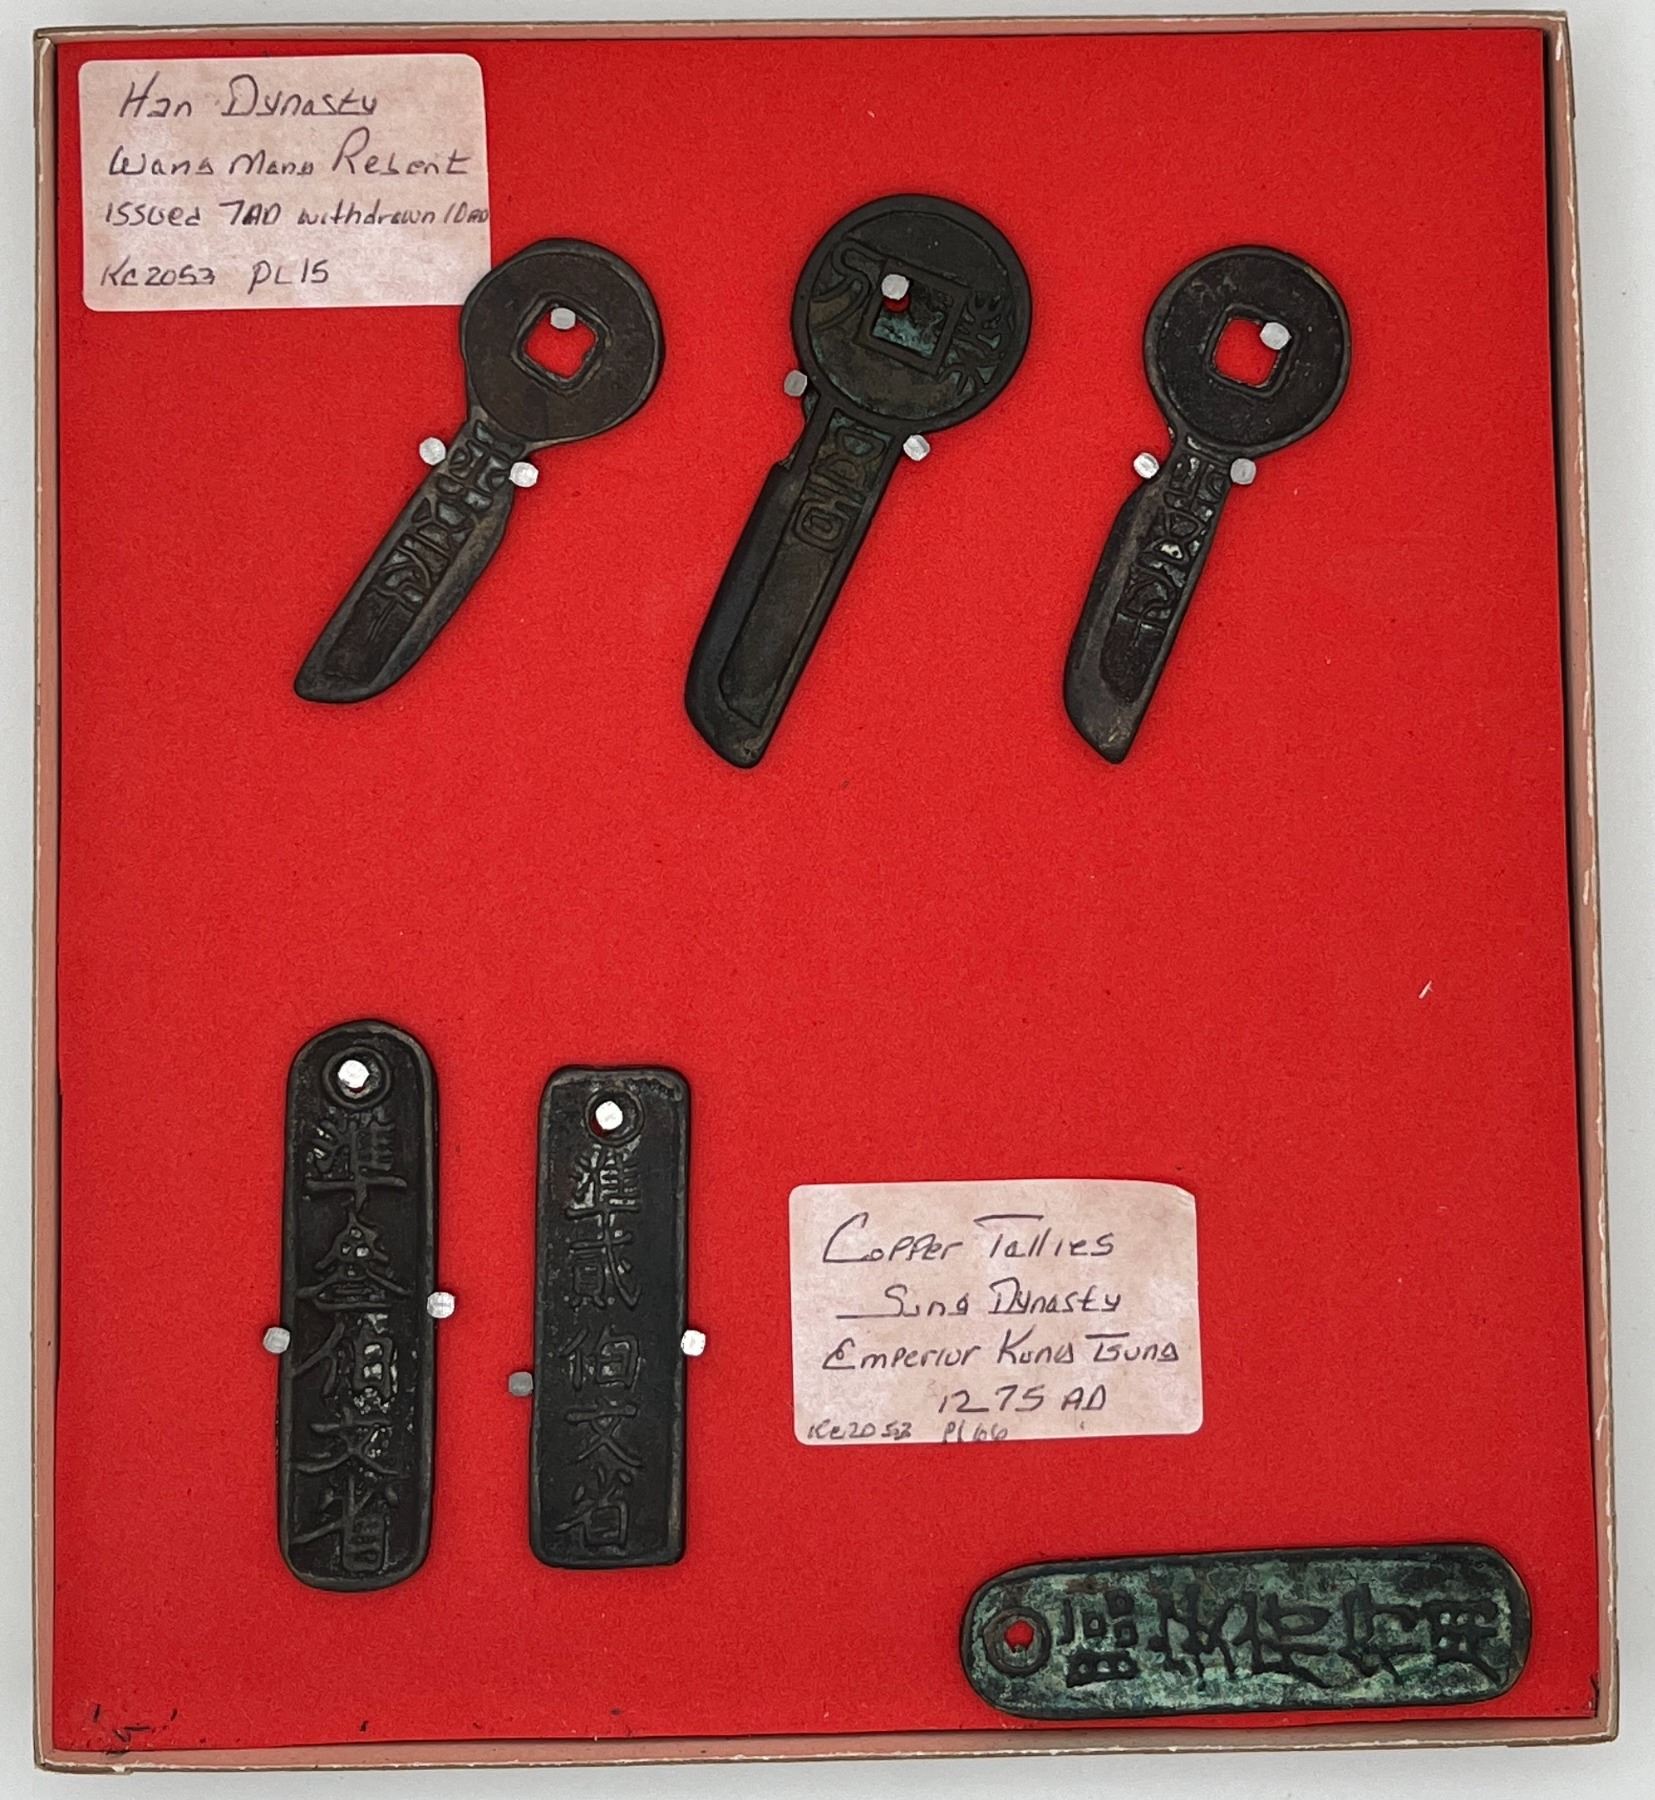 Han Dynasty
Wang Mang Regent
Issued 7AD withdrawn 10AD
KC2053 PL15
準叁伯文省
準貳伯文省
Copper Tallies
Sung Dynasty
Emperior Kung Tsung
1275 AD
Kc2053 Pl66
臨安府行用